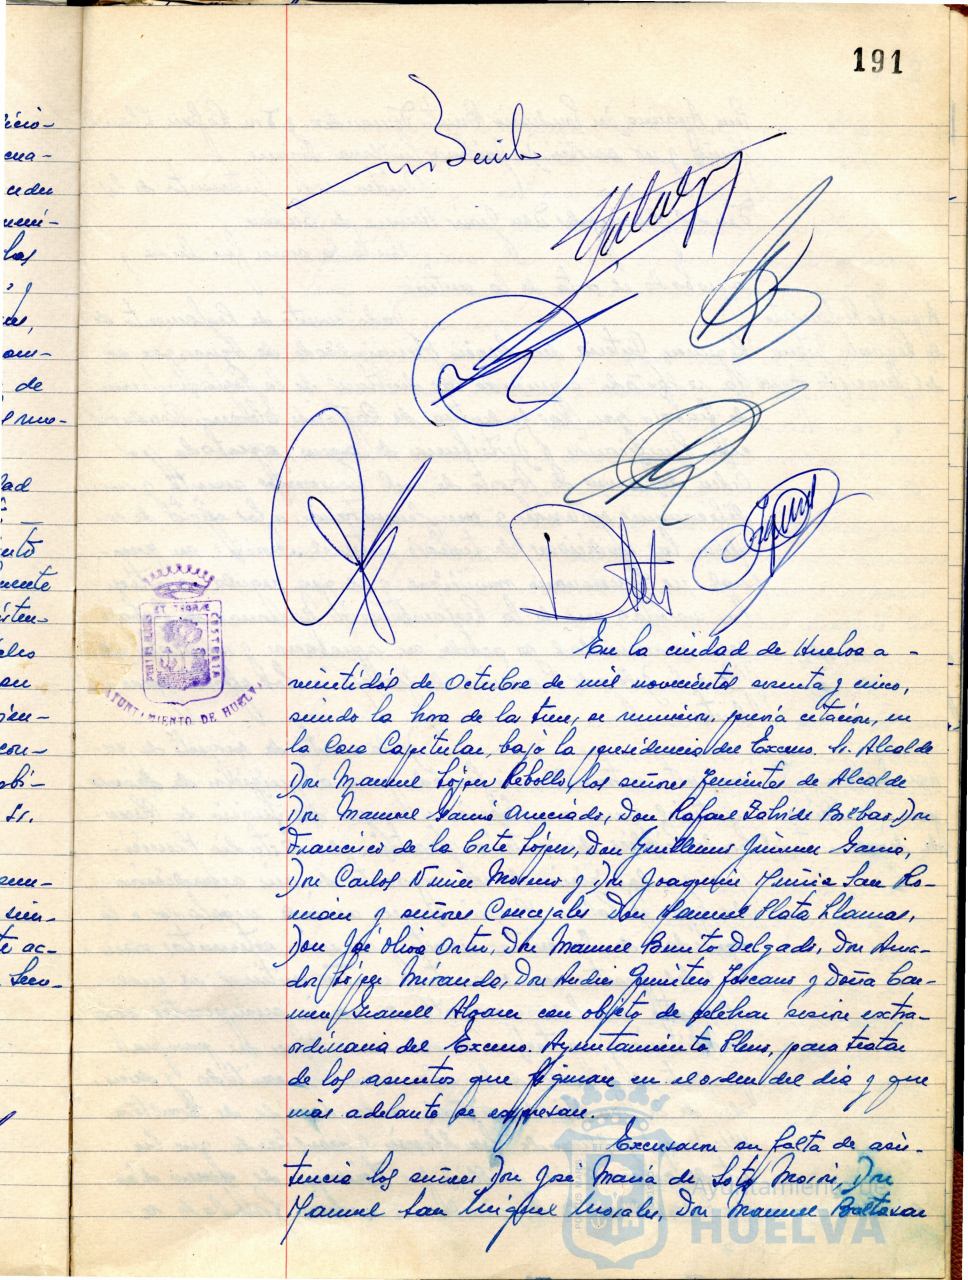 191
En la ciudad de Huelva a -
veintidós de Octubre de mil novecientos sesenta y cinco,
siendo la hora de las trece, se reunieron, previa citación, en
la Casa Capitular, bajo la presidencia del Excmo. Sr. Alcalde
Don Manuel López Rebollo, los señores Tenientes de Alcalde
Don Manuel Don Rafael Bilbao, Don
Francisco de la Corte López, Don Guillermo Jiménez García,
Don Carlos Moreno y Don Joaquín San Ro-
mán y señores Concejales Don Manuel Plata Llamas,
Don José Oliva Orta, Don Manuel Benito Delgado, Don Ama-
dor López Miranda, Don Andrés Quintero Toscano y Doña Car-
men con objeto de celebrar sesión extra-
ordinaria del Excmo. Ayuntamiento Pleno, para tratar
de los asuntos que figuran en el orden del día y que
más adelante se expresan.
Excusaron su falta de asis-
tencia los señores Don José María de Soto Morón, Don
Manuel San Miguel Morales, Don Manuel Baltasar
AYUNTAMIENTO DE HUELVA
PORTUS MARIS ET TERRAE CUSTODIA
Ayuntamiento de
HUELVA